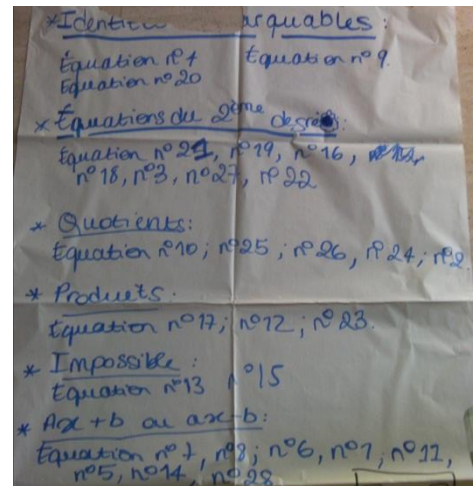 * Identit arquables :
Équation n°4 Équation n°9.
Équation n°20
* Équations du 2ème degré :
Équation n°21, n°19, n°16,
n°18, n°3, n°27, n°22
* Quotients :
Équation n°10 ; n°25 ; n°26, n°24 ; n°2
* Produits :
Équation n°17 ; n°12 ; n°23.
* Impossible :
Équation n°13 n°15
* Ax + b ou ax - b :
Équation n°7, n°8 ; n°6, n°1, n°11,
n°5, n°14, n°28